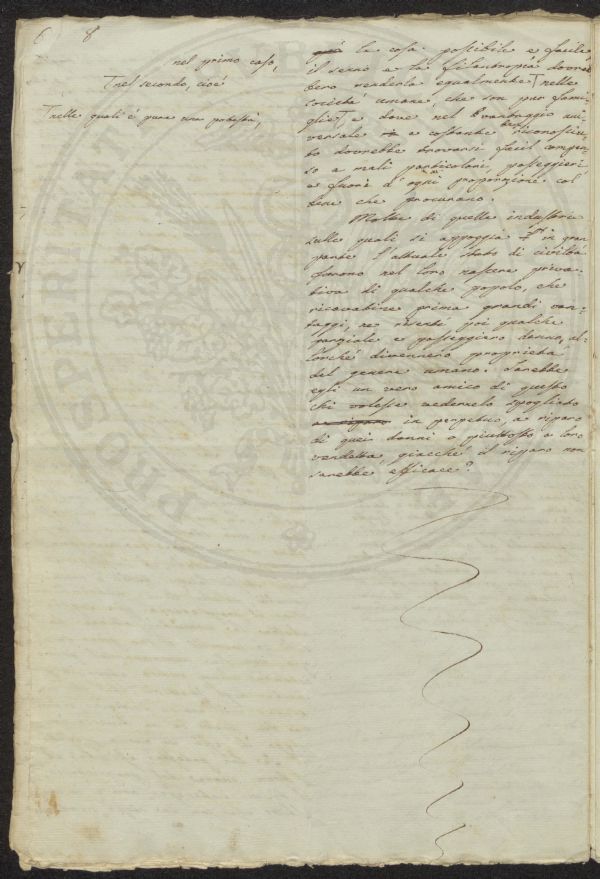 8
nel primo caso,
Tnel secondo, cioè
Tnelle quali è pura una
la cosa possibile e facile,
il senno e la filantropia dovreb-
bero renderla egualmente T nelle
società umane, che son pur fami-
glie T e dove nel vantaggio uni-
versale e costante ben riconosciu-
to dovrebbe trovarsi facil compen-
so a mali particolari, passeggieri
e fuori d'ogni proporzione col
bene che procurano.
Molte di quelle industrie
sulle quali si appoggia in gran
parte l'attuale stato di civiltà
furono nel loro nascere priva-
tiva di qualche popolo, che
ricavatine prima grandi van-
taggi, ne risentì poi qualche
parziale e passeggiero danno, al-
lorché divennero proprietà
del genere umano. Sarebbe
egli un vero amico di questo
chi volesse vederlo spogliato
in perpetuo, a riparo
di quei danni o piuttosto a loro
vendetta, giacché il riparo non
sarebbe efficace?
PROSPERITATI